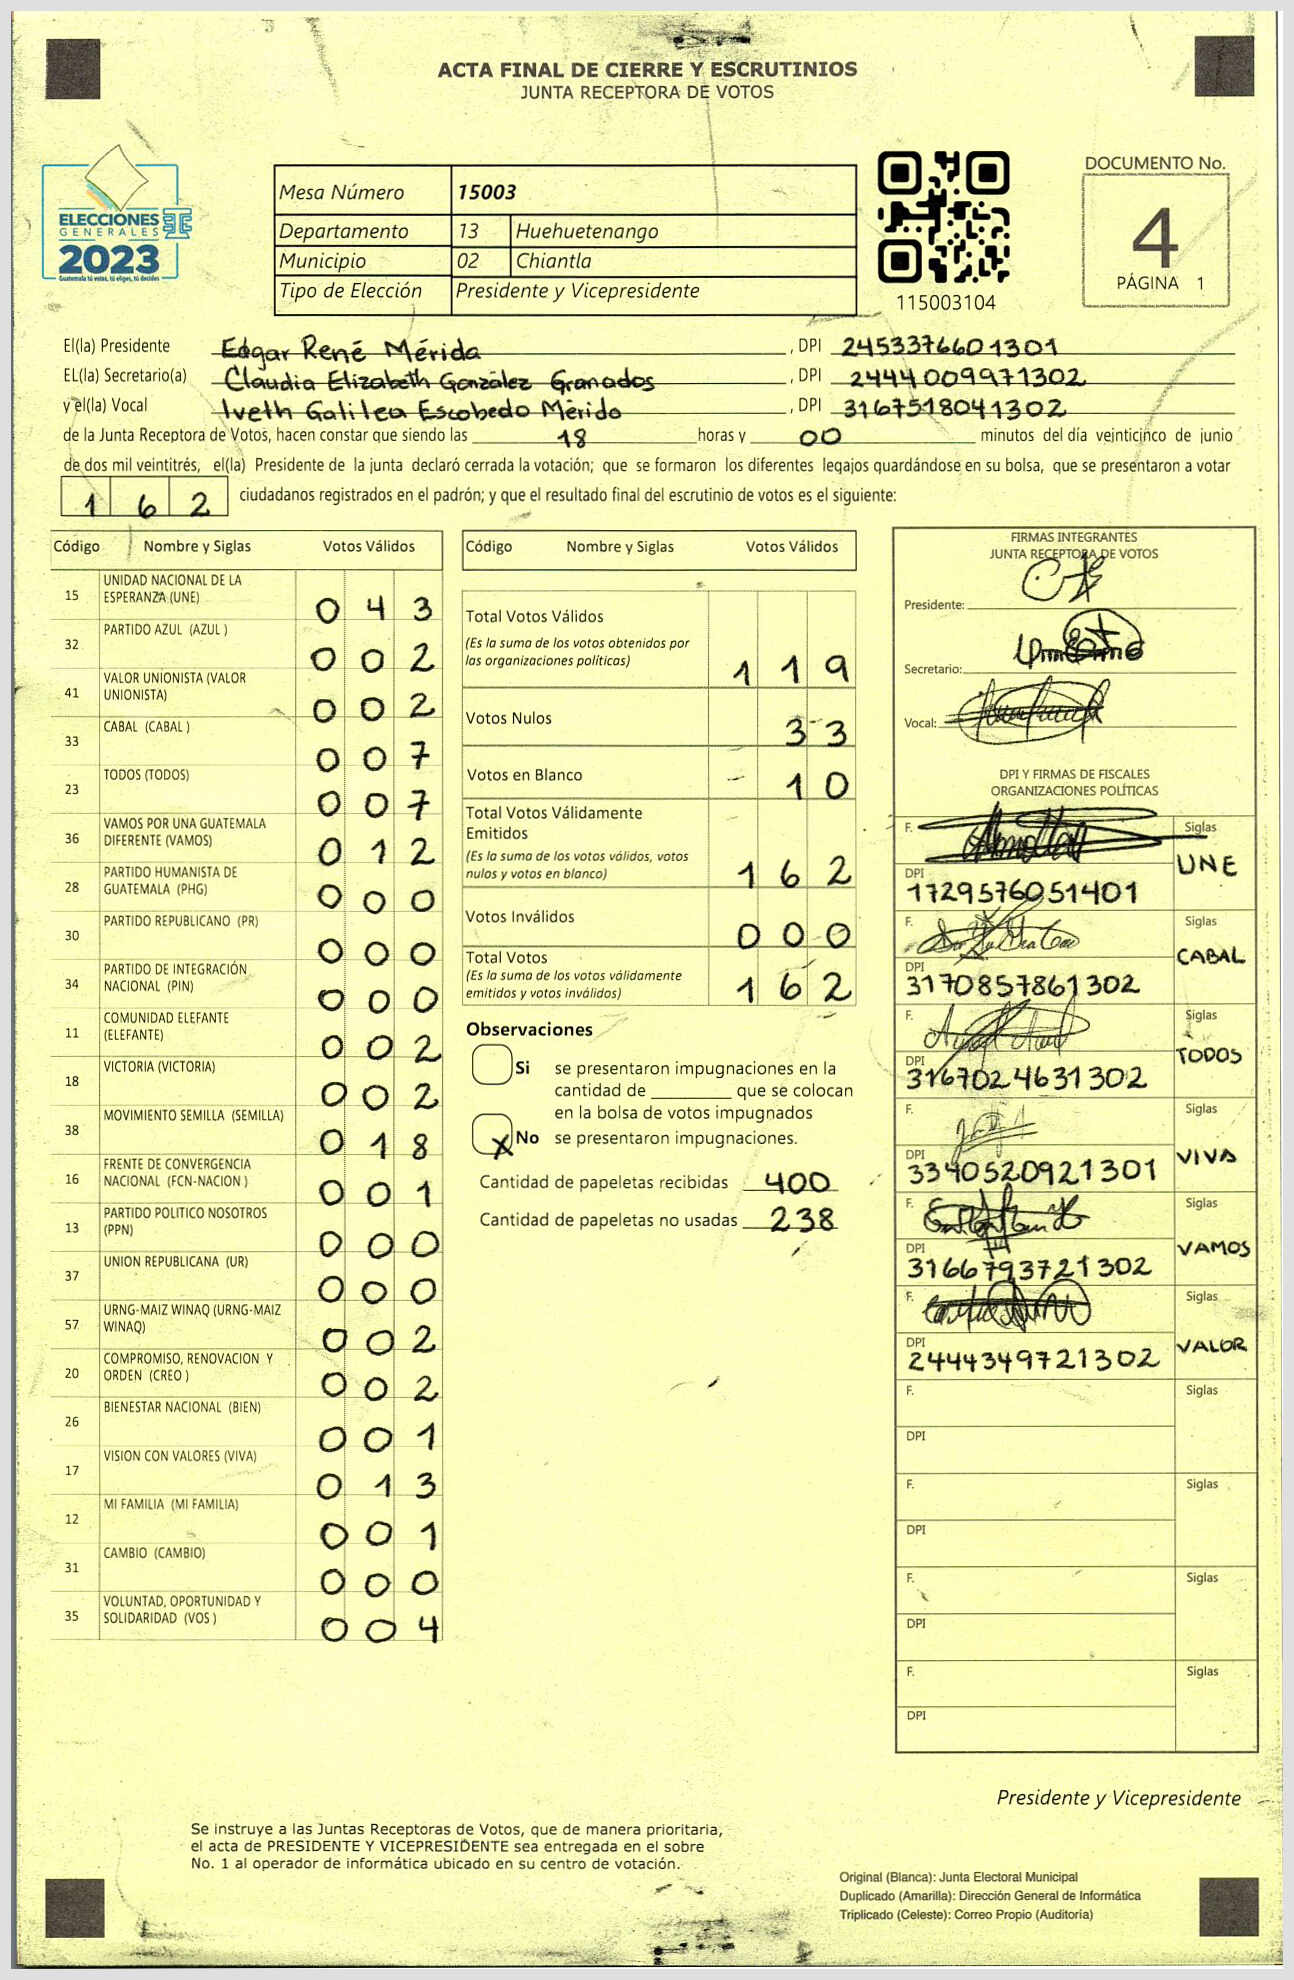 ACTA FINAL DE CIERRE Y ESCRUTINIOS
JUNTA RECEPTORA DE VOTOS
ELECCIONES
GENERALES
2023
Guatemala tú votas, tú eliges, tú decides
Mesa Número 15003
Departamento 13 Huehuetenango
Municipio 02 Chiantla
Tipo de Elección Presidente y Vicepresidente
115003104
DOCUMENTO No.
4
PÁGINA 1
El(la) Presidente Edgar René Mérida , DPI 2453376601301
EL(la) Secretario(a) Claudia Elizabeth González Granados , DPI 2444009971302
y el(la) Vocal Iveth Galilea Escobedo Mérido , DPI 3167518041302
de la Junta Receptora de Votos, hacen constar que siendo las 18 horas y 00 minutos del día veinticinco de junio
de dos mil veintitrés, el(la) Presidente de la junta declaró cerrada la votación; que se formaron los diferentes legajos guardándose en su bolsa, que se presentaron a votar
162 ciudadanos registrados en el padrón; y que el resultado final del escrutinio de votos es el siguiente:
Código Nombre y Siglas Votos Válidos
15 UNIDAD NACIONAL DE LA
ESPERANZA (UNE) 043
32 PARTIDO AZUL (AZUL ) 002
41 VALOR UNIONISTA (VALOR
UNIONISTA) 002
33 CABAL (CABAL ) 007
23 TODOS (TODOS) 007
36 VAMOS POR UNA GUATEMALA
DIFERENTE (VAMOS) 012
28 PARTIDO HUMANISTA DE
GUATEMALA (PHG) 000
30 PARTIDO REPUBLICANO (PR) 000
34 PARTIDO DE INTEGRACIÓN
NACIONAL (PIN) 000
11 COMUNIDAD ELEFANTE
(ELEFANTE) 002
18 VICTORIA (VICTORIA) 002
38 MOVIMIENTO SEMILLA (SEMILLA) 018
16 FRENTE DE CONVERGENCIA
NACIONAL (FCN-NACION ) 001
13 PARTIDO POLITICO NOSOTROS
(PPN) 000
37 UNION REPUBLICANA (UR) 000
57 URNG-MAIZ WINAQ (URNG-MAIZ
WINAQ) 002
20 COMPROMISO, RENOVACION Y
ORDEN (CREO ) 002
26 BIENESTAR NACIONAL (BIEN) 001
17 VISION CON VALORES (VIVA) 013
12 MI FAMILIA (MI FAMILIA) 001
31 CAMBIO (CAMBIO) 000
35 VOLUNTAD, OPORTUNIDAD Y
SOLIDARIDAD (VOS ) 004
Código Nombre y Siglas Votos Válidos
Total Votos Válidos
(Es la suma de los votos obtenidos por
las organizaciones políticas) 119
Votos Nulos 33
Votos en Blanco - 10
Total Votos Válidamente
Emitidos
(Es la suma de los votos válidos, votos
nulos y votos en blanco) 162
Votos Inválidos 000
Total Votos
(Es la suma de los votos válidamente
emitidos y votos inválidos) 162
Observaciones
Si se presentaron impugnaciones en la
cantidad de ________ que se colocan
en la bolsa de votos impugnados
X No se presentaron impugnaciones.
Cantidad de papeletas recibidas 400
Cantidad de papeletas no usadas 238
FIRMAS INTEGRANTES
JUNTA RECEPTORA DE VOTOS
Presidente:
Secretario:
Vocal:
DPI Y FIRMAS DE FISCALES
ORGANIZACIONES POLÍTICAS
F. Siglas
UNE
DPI
1729576051401
F. Siglas
CABAL
DPI
3170857861302
F. Siglas
TODOS
DPI
3167024631302
F. Siglas
VIVA
DPI
3340520921301
F. Siglas
VAMOS
DPI
3166793721302
F. Siglas
VALOR
DPI
2444349721302
F. Siglas
DPI
F. Siglas
DPI
F. Siglas
DPI
F. Siglas
DPI
Presidente y Vicepresidente
Se instruye a las Juntas Receptoras de Votos, que de manera prioritaria,
el acta de PRESIDENTE Y VICEPRESIDENTE sea entregada en el sobre
No. 1 al operador de informática ubicado en su centro de votación.
Original (Blanca): Junta Electoral Municipal
Duplicado (Amarilla): Dirección General de Informática
Triplicado (Celeste): Correo Propio (Auditoría)